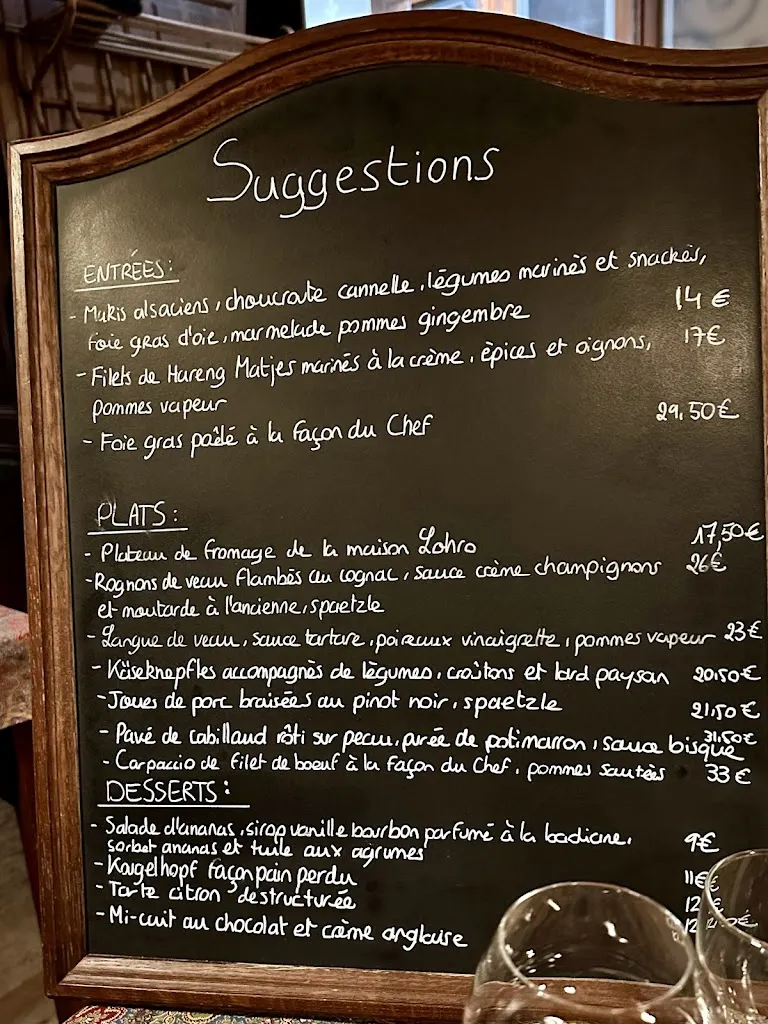 Suggestions
ENTRÉES:
- Makis alsaciens, choucroute cannelle, légumes marinés et snackés,
foie gras d'oie, marmelade pommes gingembre 14 €
- Filets de Hareng Matjes marinés à la crème, épices et oignons, 17€
pommes vapeur
- Foie gras poêlé à la façon du Chef 29,50€
PLATS:
- Plateau de fromage de la maison Lohro 17,50€
- Rognons de veau flambés au cognac, sauce crème champignons 26€
et moutarde à l'ancienne, spaetzle
- Langue de veau, sauce tartare, poireaux vinaigrette, pommes vapeur 23€
- Käseknepfles accompagnés de légumes, croûtons et lard paysan 20,50€
- Joues de porc braisées au pinot noir, spaetzle 21,50€
- Pavé de cabillaud rôti sur peau, purée de potimarron, sauce bisque 31,50€
- Carpaccio de filet de boeuf à la façon du Chef, pommes sautées 33€
DESSERTS:
- Salade d'ananas, sirop vanille bourbon parfumé à la badiane, 9€
sorbet ananas et tuile aux agrumes
- Kougelhopf façon pain perdu 11€
- Tarte citron destructurée 12€
- Mi-cuit au chocolat et crème anglaise